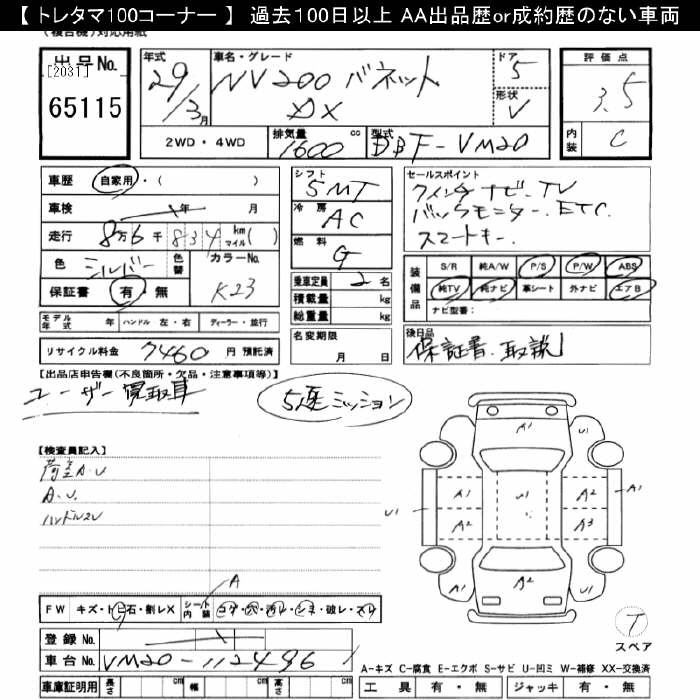 【 トレタマ100コーナー 】 過去100日以上 AA出品歴or成約歴のない車両
(複合機)対応用紙
出品No. [2031] 65115
年式 29/3月
車名・グレード NV200 バネット DX
ドア 5
形状 V
評価点 3.5
内装 C
2WD・4WD
排気量 1600 cc
型式 DBF-VM20
車歴 自家用・( )
車検 年 月
走行 8万6千834 km マイル( )
色 シルバー 色替
カラーNo. K23
保証書 有・無
シフト 5MT
冷房 AC
燃料 G
乗車定員 2名
積載量 kg
総重量 kg
セールスポイント
クインタナビ.TV
バックモニター.ETC.
スマートキー.
装備品 S/R 純A/W P/S P/W ABS
純TV 純ナビ 革シート 外ナビ エアB
ナビ型番:
モデル年式 年 ハンドル 左・右 ディーラー・並行
リサイクル料金 7460 円 預託済
名変期限 月 日
後日品 保証書.取説
【出品店申告欄(不良箇所・欠品・注意事項等)】
ユーザー買取車
5速ミッション
【検査員記入】
荷室A.U
A.U.
ハンドルスレ
A
FW キズ・トビ石・割レX シート内装 コゲ・穴・汚レ・シミ・破レ・スレ
登録 No.
車台 No. VM20-112496
車庫証明用 長さ cm 幅 cm 高さ cm
A1 U1
A1 U1 A2 A1
U1 A2 A3
A1 A2 U1
T
スペア
A-キズ C-腐食 E-エクボ S-サビ U-凹ミ W-補修 XX-交換済
工具 有・無 ジャッキ 有・無